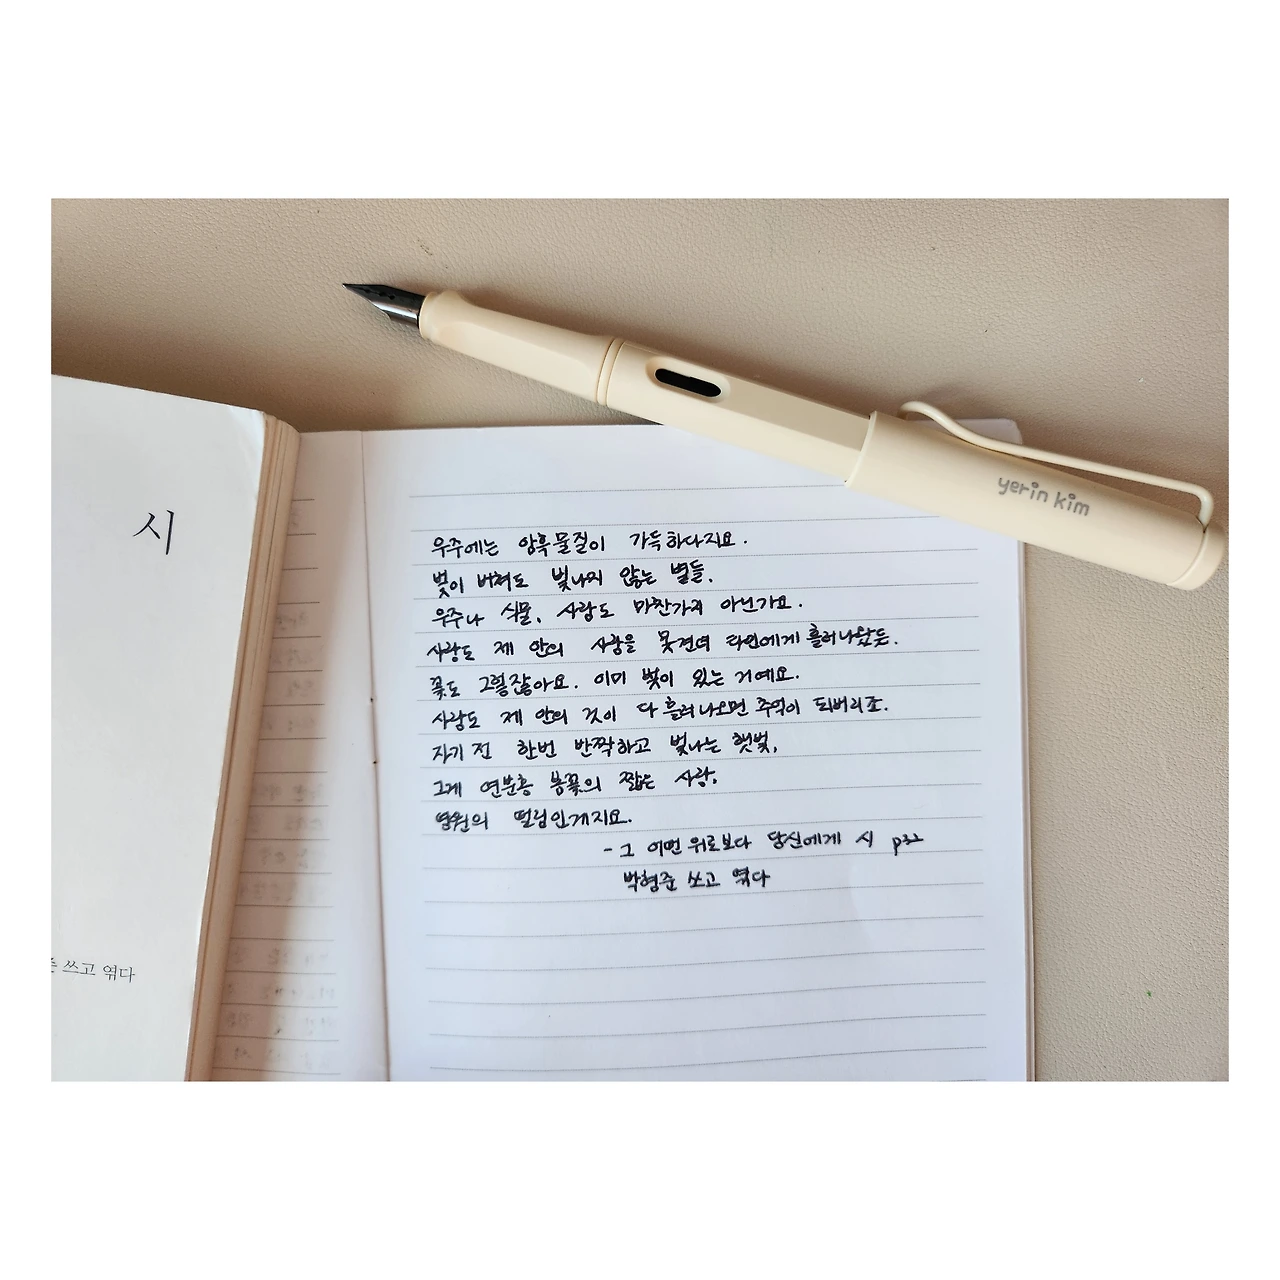 yerin kim
시
쓰고 엮다
우주에는 암흑물질이 가득하다지요.
빛이 버젓도 빛나지 않는 별들.
우주나 식물, 사랑도 마찬가지 아닌가요.
사랑도 제 안의 사랑을 못견뎌 타인에게 흘러나왔듯.
꽃도 그렇잖아요. 이미 빛이 있는 거예요.
사랑도 제 안의 것이 다 흘러나오면 추억이 되버리죠.
지기 전 한번 반짝하고 빛나는 햇빛,
그게 연분홍 봉꽃의 짧은 사랑,
영원의 떨림인게지요.
- 그 어떤 위로보다 당신에게 시 p32
박형준 쓰고 엮다